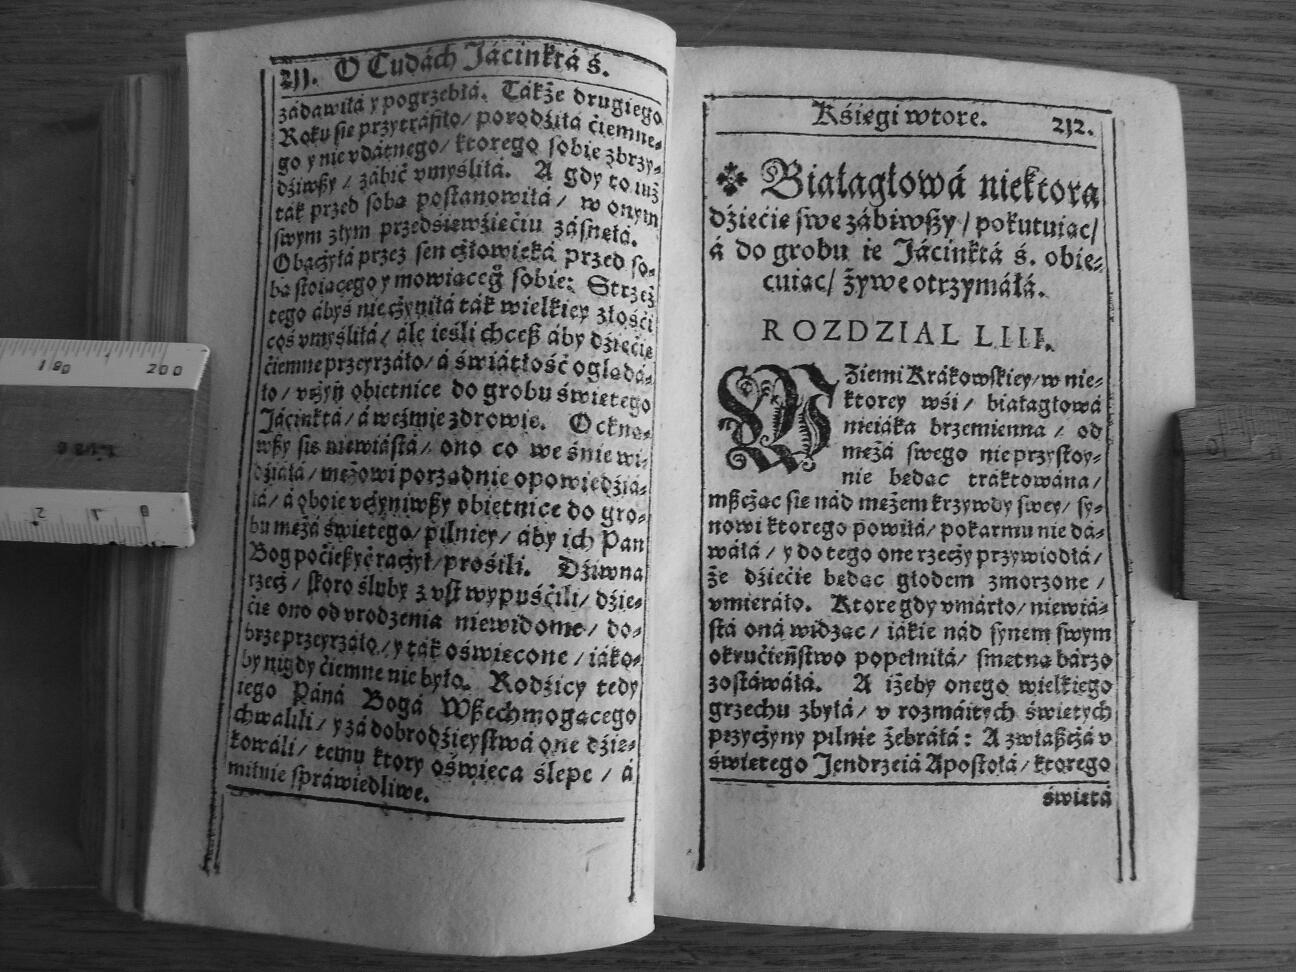 211. O Cudách Jácinktá ś.
zádawiłá y pogrzebłá. Tákże drugiego
Roku sie przytráfiło/ porodźiłá ćiemne-
go y nie vdátnego/ ktorego sobie zbrzy-
dźiwßy / zábić vmyśliłá. A gdy to iuż
ták przed sobą postanowiłá / w onym
swym złym przedśięwźięćiu zásnęłá.
Obaczyłá przez sen człowieká przed so-
bą stoiącego y mowiącego sobie: Strzeż
tego ábyś nie czyniłá ták wielkiey złośći
coś vmyśliłá / ále ieśli chceß áby dźiećię
ćiemne przeyrzáło/ á świátłość oglądá-
ło / vczyń obietnice do grobu świętego
Jácinktá / á weźmie zdrowie. Ockną-
wßy się niewiástá / ono co we śnie wi-
dźiáłá / mężowi porządnie opowiedźiá-
łá / á oboie vczyniwßy obietnice do gro-
bu mężá świętego/ pilniey / áby ich Pan
Bog poćießyć raczył / prośili. Dźiwna
rzecz / skoro śluby z vst wypuśćili/ dźie-
ćię ono od vrodzenia niewidome/ do-
brze przeyrzáło / y ták oświecone / iáko-
by nigdy ćiemne nie było. Rodźicy tedy
iego Páná Bogá Wßechmogącego
chwalili / y zá dobrodźieystwá one dźię-
kowáli / temu ktory oświeca ślepe / á
miłuie spráwiedliwe.
Kśięgi wtore. 212.
Białagłowá niektora
dźiećię swe zábiwßy / pokutuiąc/
á do grobu ie Jácinktá ś. obie-
cuiąc/ żywe otrzymáłá.
ROZDZIAL LIII.
W Ziemi Krákowskiey/ w nie-
ktorey wśi / białagłowá
nieiáka brzemienna / od
mężá swego nieprzystoy-
nie będąc tráktowána /
mßcząc się nád mężem krzywdy swey/ sy-
nowi ktorego powiłá/ pokarmu nie dá-
wáłá / y do tego one rzeczy przywiodłá /
że dźiećię będąc głodem zmorzone /
vmieráło. Ktore gdy vmárło/ niewiá-
stá oná widząc / iákie nád synem swym
okrućieństwo popełniłá/ smętna bárzo
zostáwáłá. A iżeby onego wielkiego
grzechu zbyłá / v rozmáitych świętych
przyczyny pilnie żebráłá : A zwłaßczá v
świętego Jendrzeiá Apostołá / ktorego
świętá